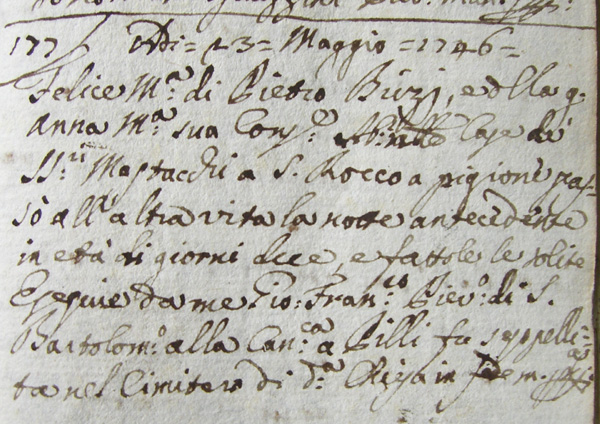 177 Adi = 23 = Maggio = 1746 =
Felice M.a di Pietro Buzi, e della q.
Anna M.a sua Cons.e Ab: nelle Case de
SS.ri Mastacchi a S. Rocco a pigione pas-
sò all'altra vita la notte antecedente
in età di giorni dece, e fattole le solite
Esequie da me Gio: Fran.co Piev.o di S.
Bartolom.o alla Can.ca a Pilli fu seppelli=
ta nel Cimitero di d.a Chiesa in fede m.